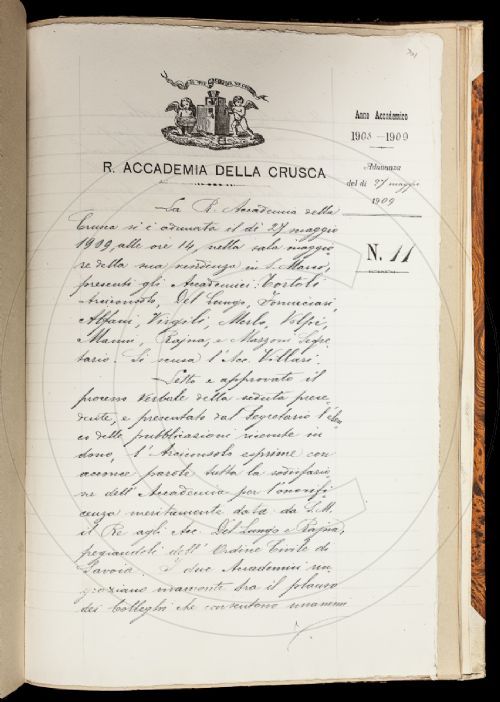 Anno Accademico
1908-1909
Adunanza
del dì 27 maggio
1909
N. 11
R. ACCADEMIA DELLA CRUSCA
La R. Accademia della
Crusca si è adunata il dì 27 maggio
1909, alle ore 14, nella sala maggio-
re della sua residenza in S. Marco,
presenti gli Accademici: Tortoli
Arciconsolo, Del Lungo, Fornaciari,
Alfani, Virgili, Merlo, Volpi,
Manni, Rajna, e Mazzoni Segre-
tario. Si scusa l'Acc. Villari.
Letto e approvato il
processo verbale della seduta prece-
dente, e presentato dal Segretario l'elen-
co delle pubblicazioni ricevute in
dono, l'Arciconsolo esprime con
acconce parole tutta la sodisfazio-
ne dell'Accademia per l'onorifi-
cenza meritamente data da S. M.
il Re agli Acc. Del Lungo e Rajna,
pregiandoli dell'Ordine Civile di
Savoia. I due Accademici rin-
graziano vivamente tra il plauso
dei Colleghi che consentono unanimi